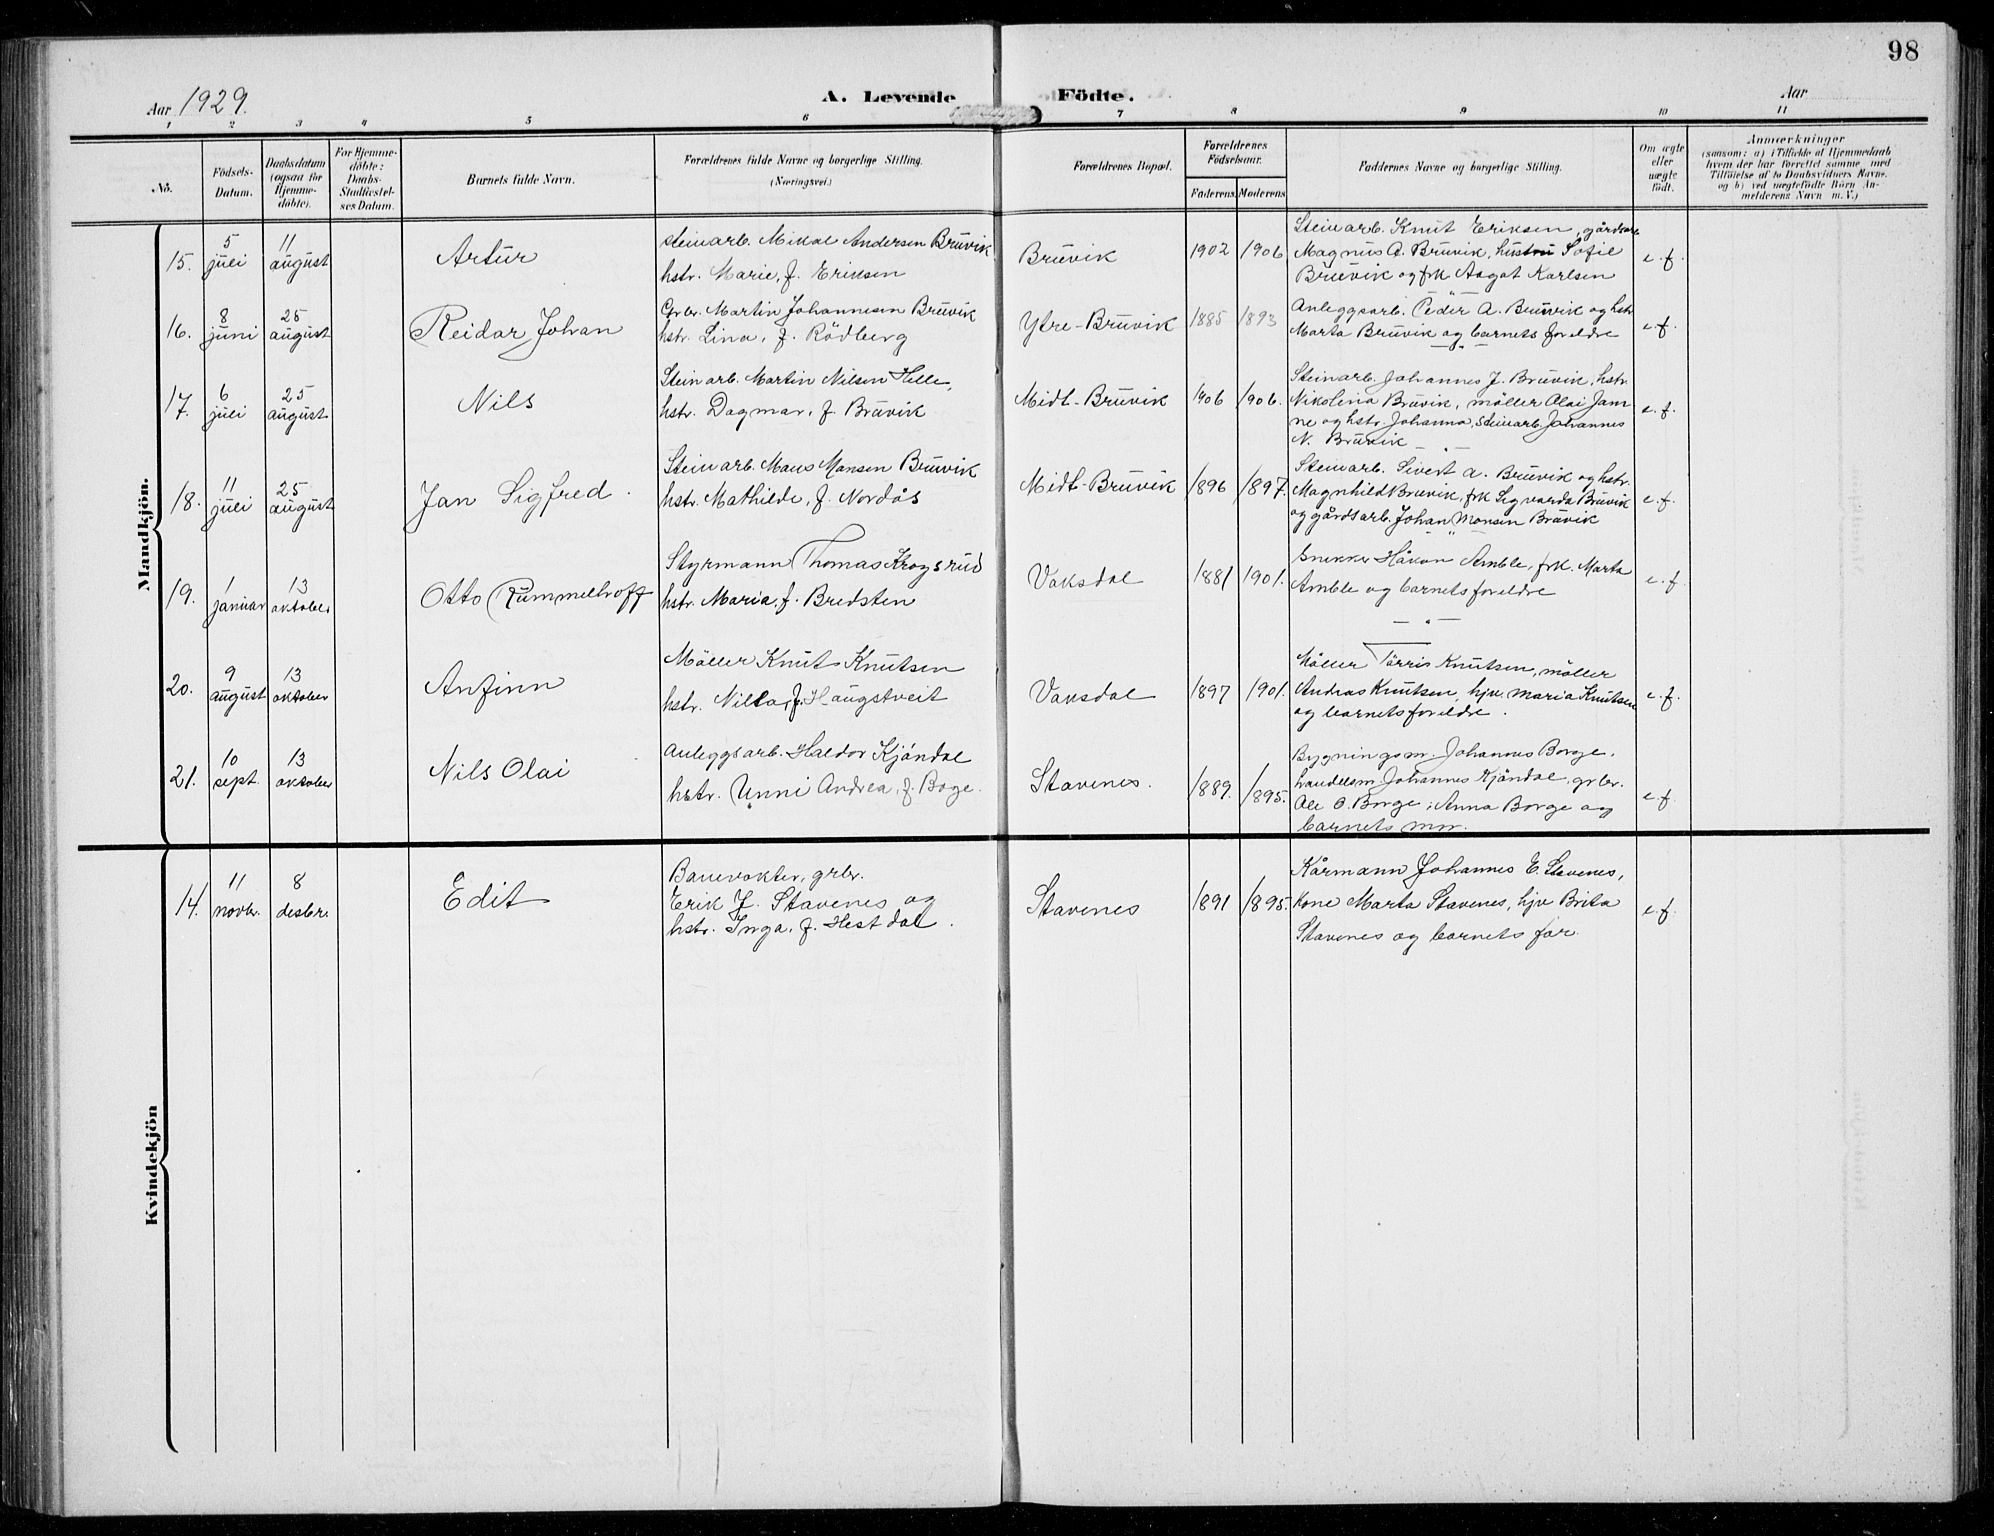 98
Aar 1929.
A. Levende Födte.
Aar
1 2 3 4 5 6 7 8 9 10 11
No.
Födsels-
Datum.
Daabsdatum
(ogsaa for
Hjemme-
döbte).
For Hjemme-
döbte:
Daabs-
Stadfæstel-
ses Datum.
Barnets fulde Navn.
Forældrenes fulde Navne og borgerlige Stilling.
(Næringsvei.)
Forældrenes Bopæl.
Forældrenes
Födselsaar.
Faderens. Moderens
Faddernes Navne og borgerlige Stilling.
Om ægte
eller
uægte
födt.
Anmærkninger
(saasom: a) i Tilfælde af Hjemmedaab
hvem der har forrettet samme, med
Tilföielse af to Daabsvidners Navne.
og b) ved uægtefödte Börn An-
melderens Navn m. V.)
Mandkjön.
15.
5
juli
11
august
Artur
Steinarb. Mikal Andersen Bruvik
hstr. Marie, f. Eriksen
Bruvik
1902 1906
Steinarb. Knut Eriksen, gårdsarb.
Magnus A. Bruvik, hustru Sofie
Bruvik og frk Aagot Karlsen
e.f.
16.
8
juni
25
august
Reidar Johan
Grbr. Martin Johannesen Bruvik
hstr. Lina, f. Rödberg
Ytre-Bruvik
1885 1893
Anleggsarb. Peder A. Bruvik og hstr
Marta Bruvik og barnets foreldre
e.f.
17.
6
juli
25
august
Nils
Steinarb. Martin Nilsen Helle,
hstr. Dagmar, f. Bruvik
Midt-Bruvik
1906 1906.
Steinarb. Johannes J. Bruvik, hstr.
Nikolina Bruvik, möller Olai Jam-
ne og hstr. Johanna, Steinarb. Johannes
N. Bruvik
e.f.
18.
11
juli
25
august
Jan Sigfred.
Steinarb. Mans Mansen Bruvik
hstr. Mathilde, f. Nordås
Midt-Bruvik
1896 1897.
Steinarb. Sivert A. Bruvik og hstr.
Magnhild Bruvik, frk Sigvarda Bruvik
og gårdsarb. Johan Monsen Bruvik
e.f.
19.
1
januar
13
oktober
Otto Rummelhoff
Styrmann Thomas Krogsrud
hstr. Maria, f. Bredsten
Vaksdal
1881 1901.
Snekker Håkon Amble, frk. Marta
Amble og barnets foreldre
e.f.
20.
9
august
13
oktober
Anfinn
Möller Knut Knutsen
hstr. Nilla, f. Haugstveit
Vaksdal
1897 1901.
Möller Torris Knutsen, möller
Andras Knutsen, hjv. Maria Knutsen
og barnets foreldre.
e.f.
21.
10
sept.
13
oktober
Nils Olai
Anleggsarb. Haldor Kjöndal
hstr. Unni Andrea, f. Boge.
Stavenes.
1889. 1895.
Bygningsm. Johannes Borge,
handelsm. Johannes Kjöndal, grbr.
Ole O. Borge, Anna Borge og
barnets mor.
e.f.
Kvindekjön
14.
11
novbr.
8
desbr.
Edit
Banevokter, grbr.
Erik J. Stavenes og
hstr. Inga, f. Hestdal.
Stavenes
1891 1895.
Kårmann Johannes E. Stavenes,
Kone Marta Stavenes, hjv Brita
Stavenes og barnets far.
e.f.